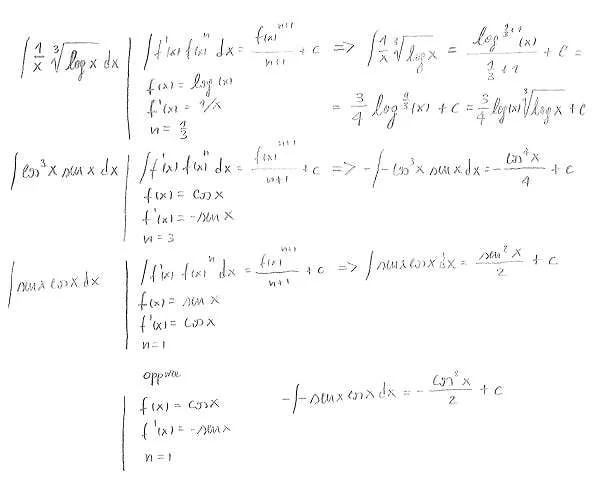 ∫ 1/x ∛(log x) dx | ∫ f'(x) f(x)^n dx = f(x)^(n+1)/(n+1) + c => ∫ 1/x ∛(log x) = log^(1/3+1)(x)/(1/3+1) + c =
f(x) = log(x)
f'(x) = 1/x
n = 1/3
= 3/4 log^(4/3)(x) + c = 3/4 log(x) ∛(log x) + c
∫ cos³x sen x dx | ∫ f'(x) f(x)^n dx = f(x)^(n+1)/(n+1) + c => -∫ -cos³x sen x dx = - cos⁴x/4 + c
f(x) = cos x
f'(x) = -sen x
n = 3
∫ sen x cos x dx | ∫ f'(x) f(x)^n dx = f(x)^(n+1)/(n+1) + c => ∫ sen x cos x dx = sen²x/2 + c
f(x) = sen x
f'(x) = cos x
n = 1
oppure
f(x) = cos x
f'(x) = -sen x
n = 1
-∫ -sen x cos x dx = - cos²x/2 + c